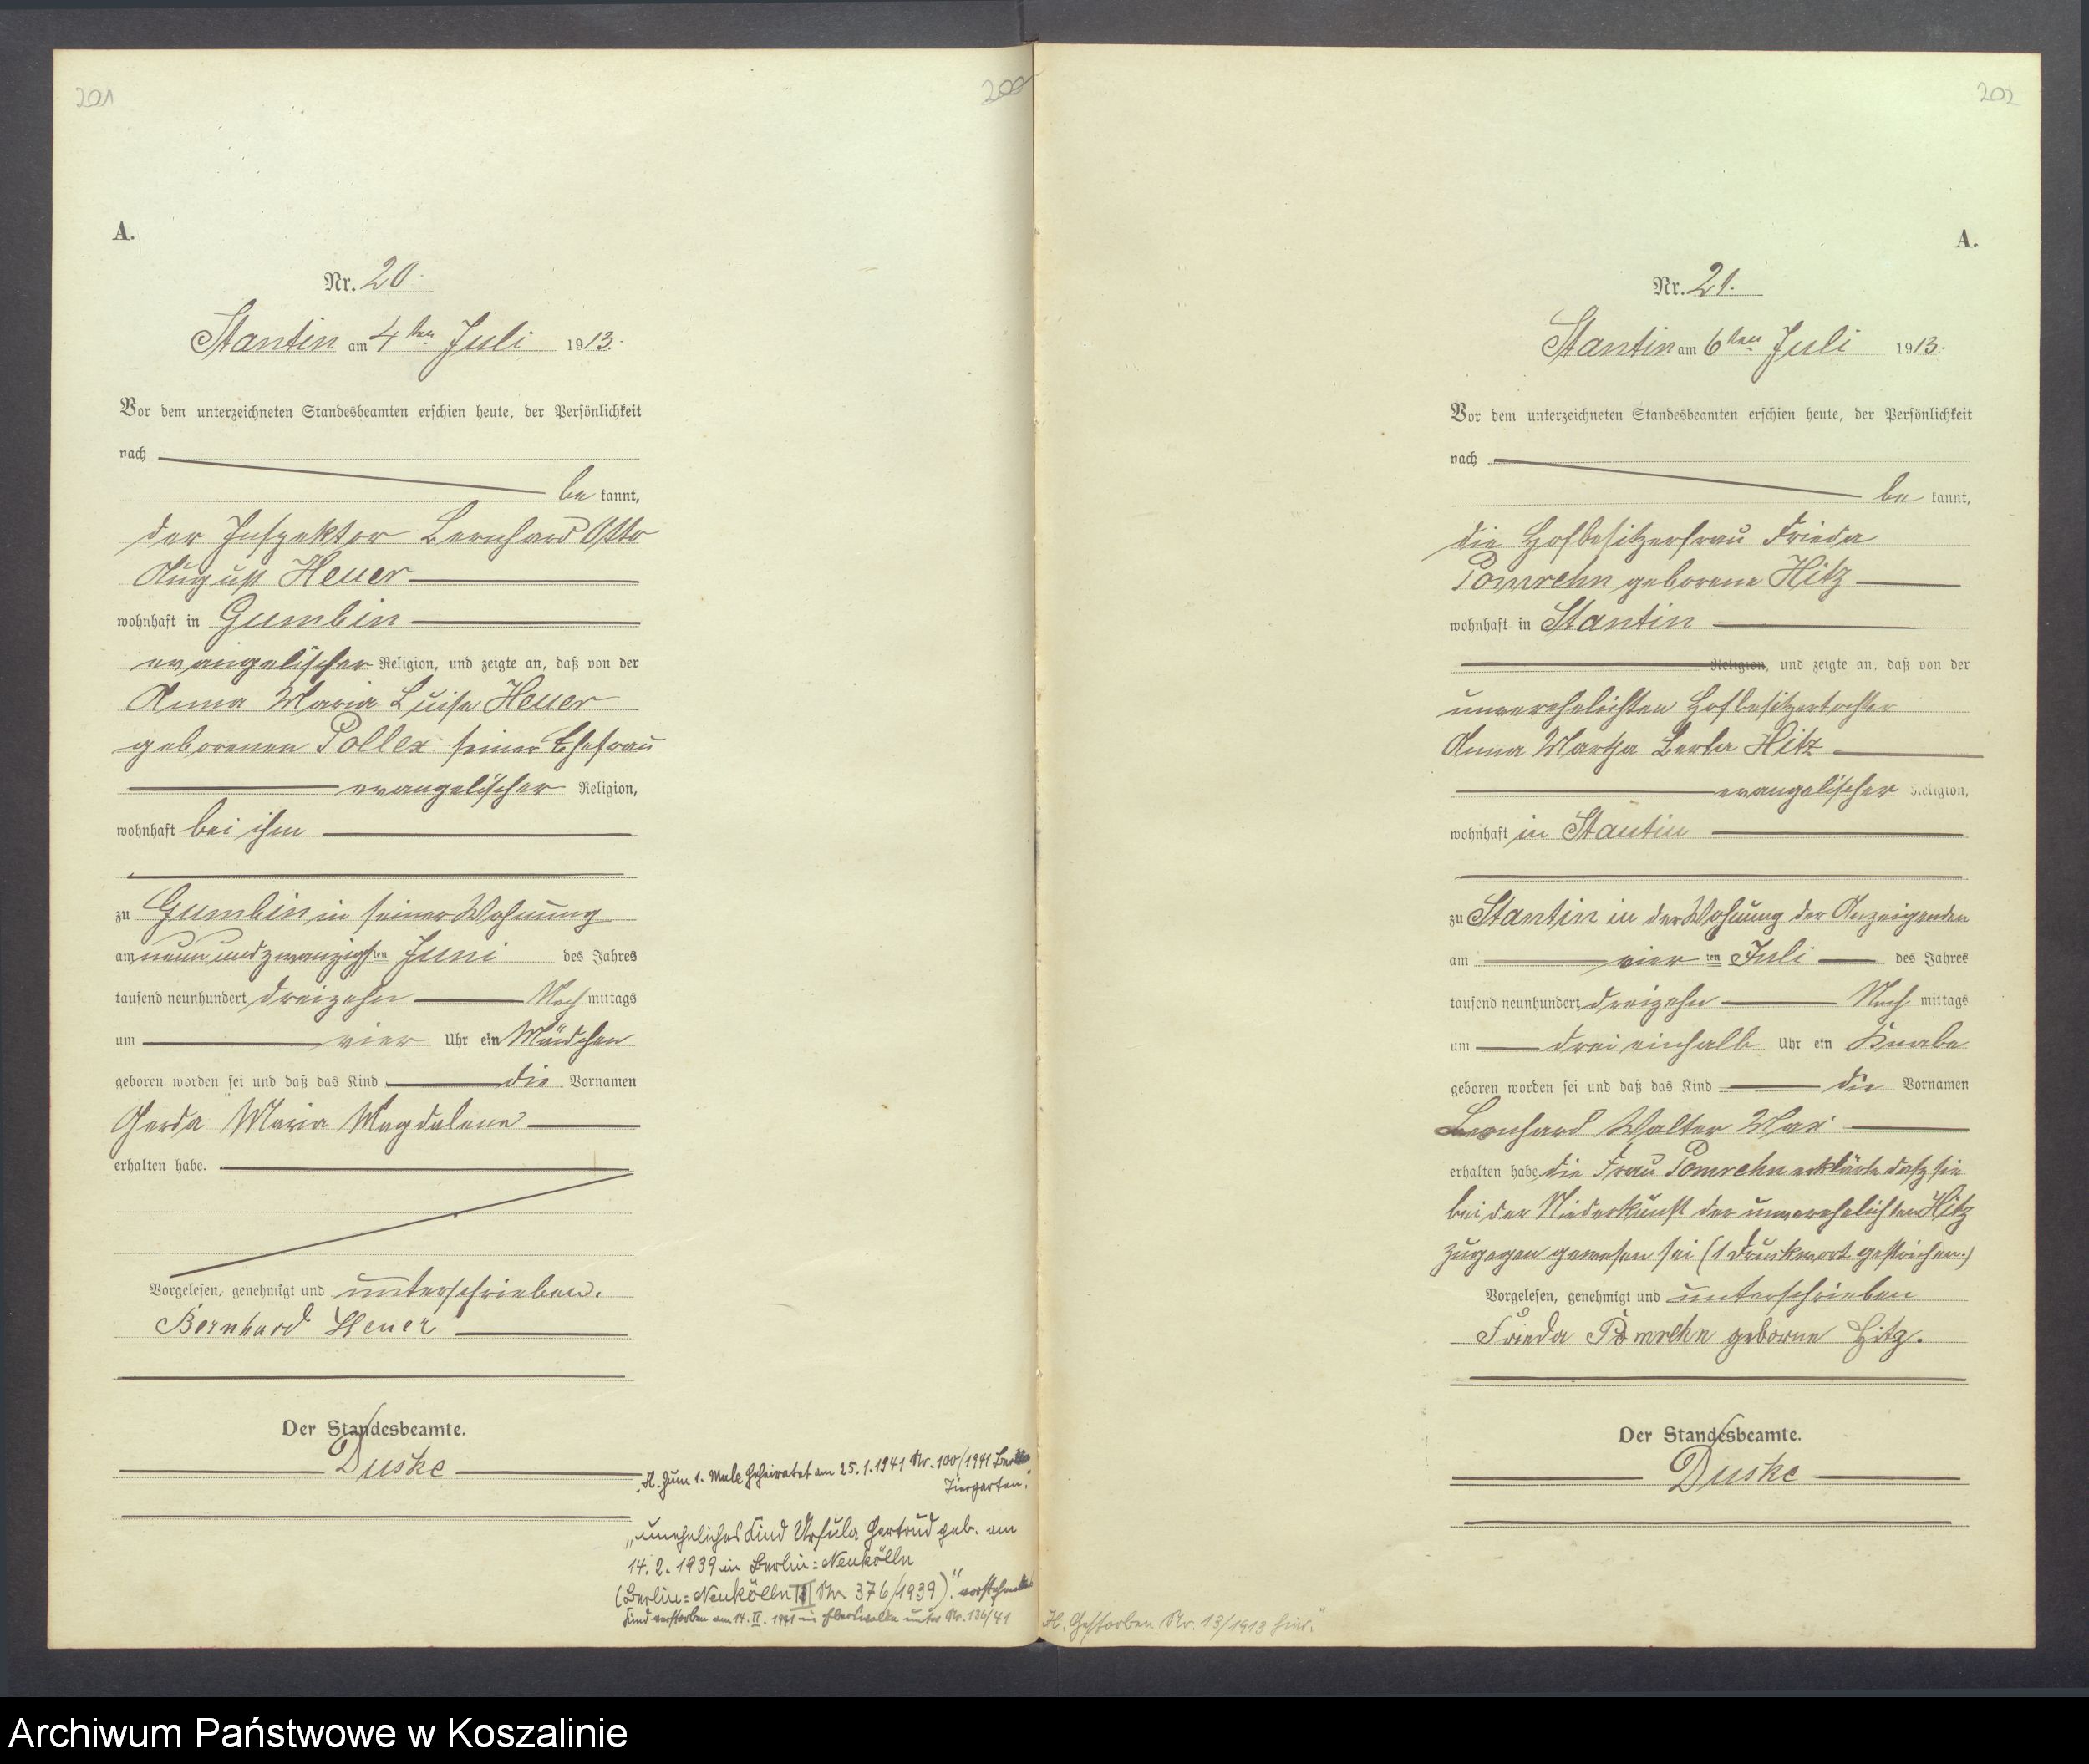 201
200
A.
Nr. 20.
Stantin am 4ten Juli 1913.
Vor dem unterzeichneten Standesbeamten erschien heute, der Persönlichkeit
nach
be kannt,
der Inspektor Bernhard Otto
August Heuer
wohnhaft in Gumbin
evangelischer Religion, und zeigte an, daß von der
Anna Maria Luise Heuer
geborenen Pollex seiner Ehefrau
evangelischer Religion,
wohnhaft bei ihm
zu Gumbin in seiner Wohnung
am neun und zwanzigsten Juni des Jahres
tausend neunhundert dreizehn Nach mittags
um vier Uhr ein Mädchen
geboren worden sei und daß das Kind die Vornamen
Gerda Maria Magdalena
erhalten habe.
Vorgelesen, genehmigt und unterschrieben.
Bernhard Heuer
Der Standesbeamte.
Duske
H. Zum 1. Male geheiratet am 25.1.1941 Nr. 100/1941 Berlin
Tiergarten."
„uneheliches Kind Ursula Gertrud geb. am
14.2.1939 in Berlin=Neukölln
(Berlin=Neukölln III Nr. 376/1939)." vorstehendes
Kind verstorben am 14. II. 1941 in unter Nr. 136/41
202
A.
Nr. 21.
Stantin am 6ten Juli 1913.
Vor dem unterzeichneten Standesbeamten erschien heute, der Persönlichkeit
nach
be kannt,
die Hofbesitzerfrau Frieda
Pomrehn geborene Hitz
wohnhaft in Stantin
Religion, und zeigte an, daß von der
unverehelichten Hofbesitzertochter
Anna Martha Berta Hitz
evangelischer Religion,
wohnhaft in Stantin
zu Stantin in der Wohnung der Anzeigenden
am vier ten Juli des Jahres
tausend neunhundert dreizehn Nach mittags
um drei einhalb Uhr ein Knabe
geboren worden sei und daß das Kind die Vornamen
Bernhard Walter Max
erhalten habe die Frau Pomrehn erklärte daß sie
bei der Niederkunft der unverehelichten Hitz
zugegen gewesen sei (1 Druckwort gestrichen.)
Vorgelesen, genehmigt und unterschrieben
Frieda Pomrehn geborne Hitz.
Der Standesbeamte.
Duske
H. Gestorben Nr. 13/1913 hier."
Archiwum Państwowe w Koszalinie